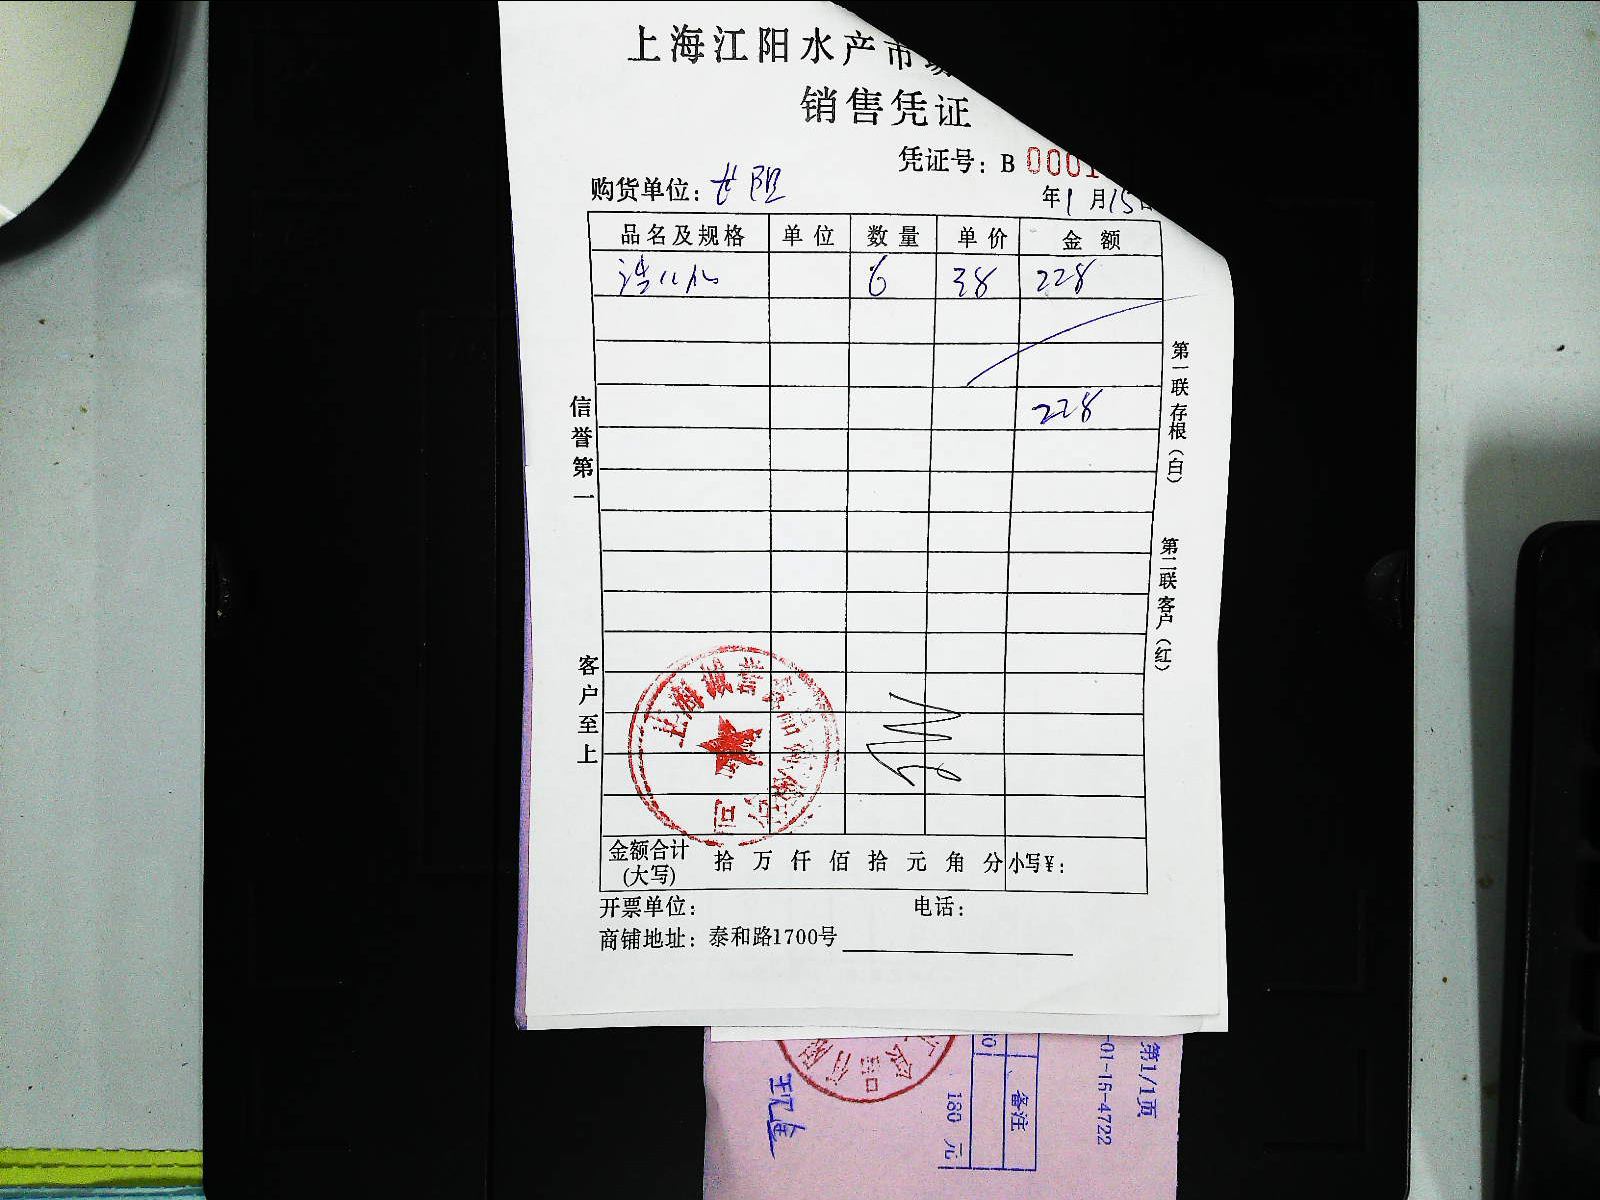 上海江阳水产市
销售凭证
凭证号：B 0001
购货单位：
年1月15日
品名及规格 单位 数量 单价 金额
6 38 228
228
信誉第一
客户至上
第一联存根（白）
第二联客户（红）
上海诚誉食品有限公司
金额合计(大写) 拾 万 仟 佰 拾 元 角 分 小写¥：
开票单位： 电话：
商铺地址：泰和路1700号
第1/1页
-01-15-4722
备注
180 元